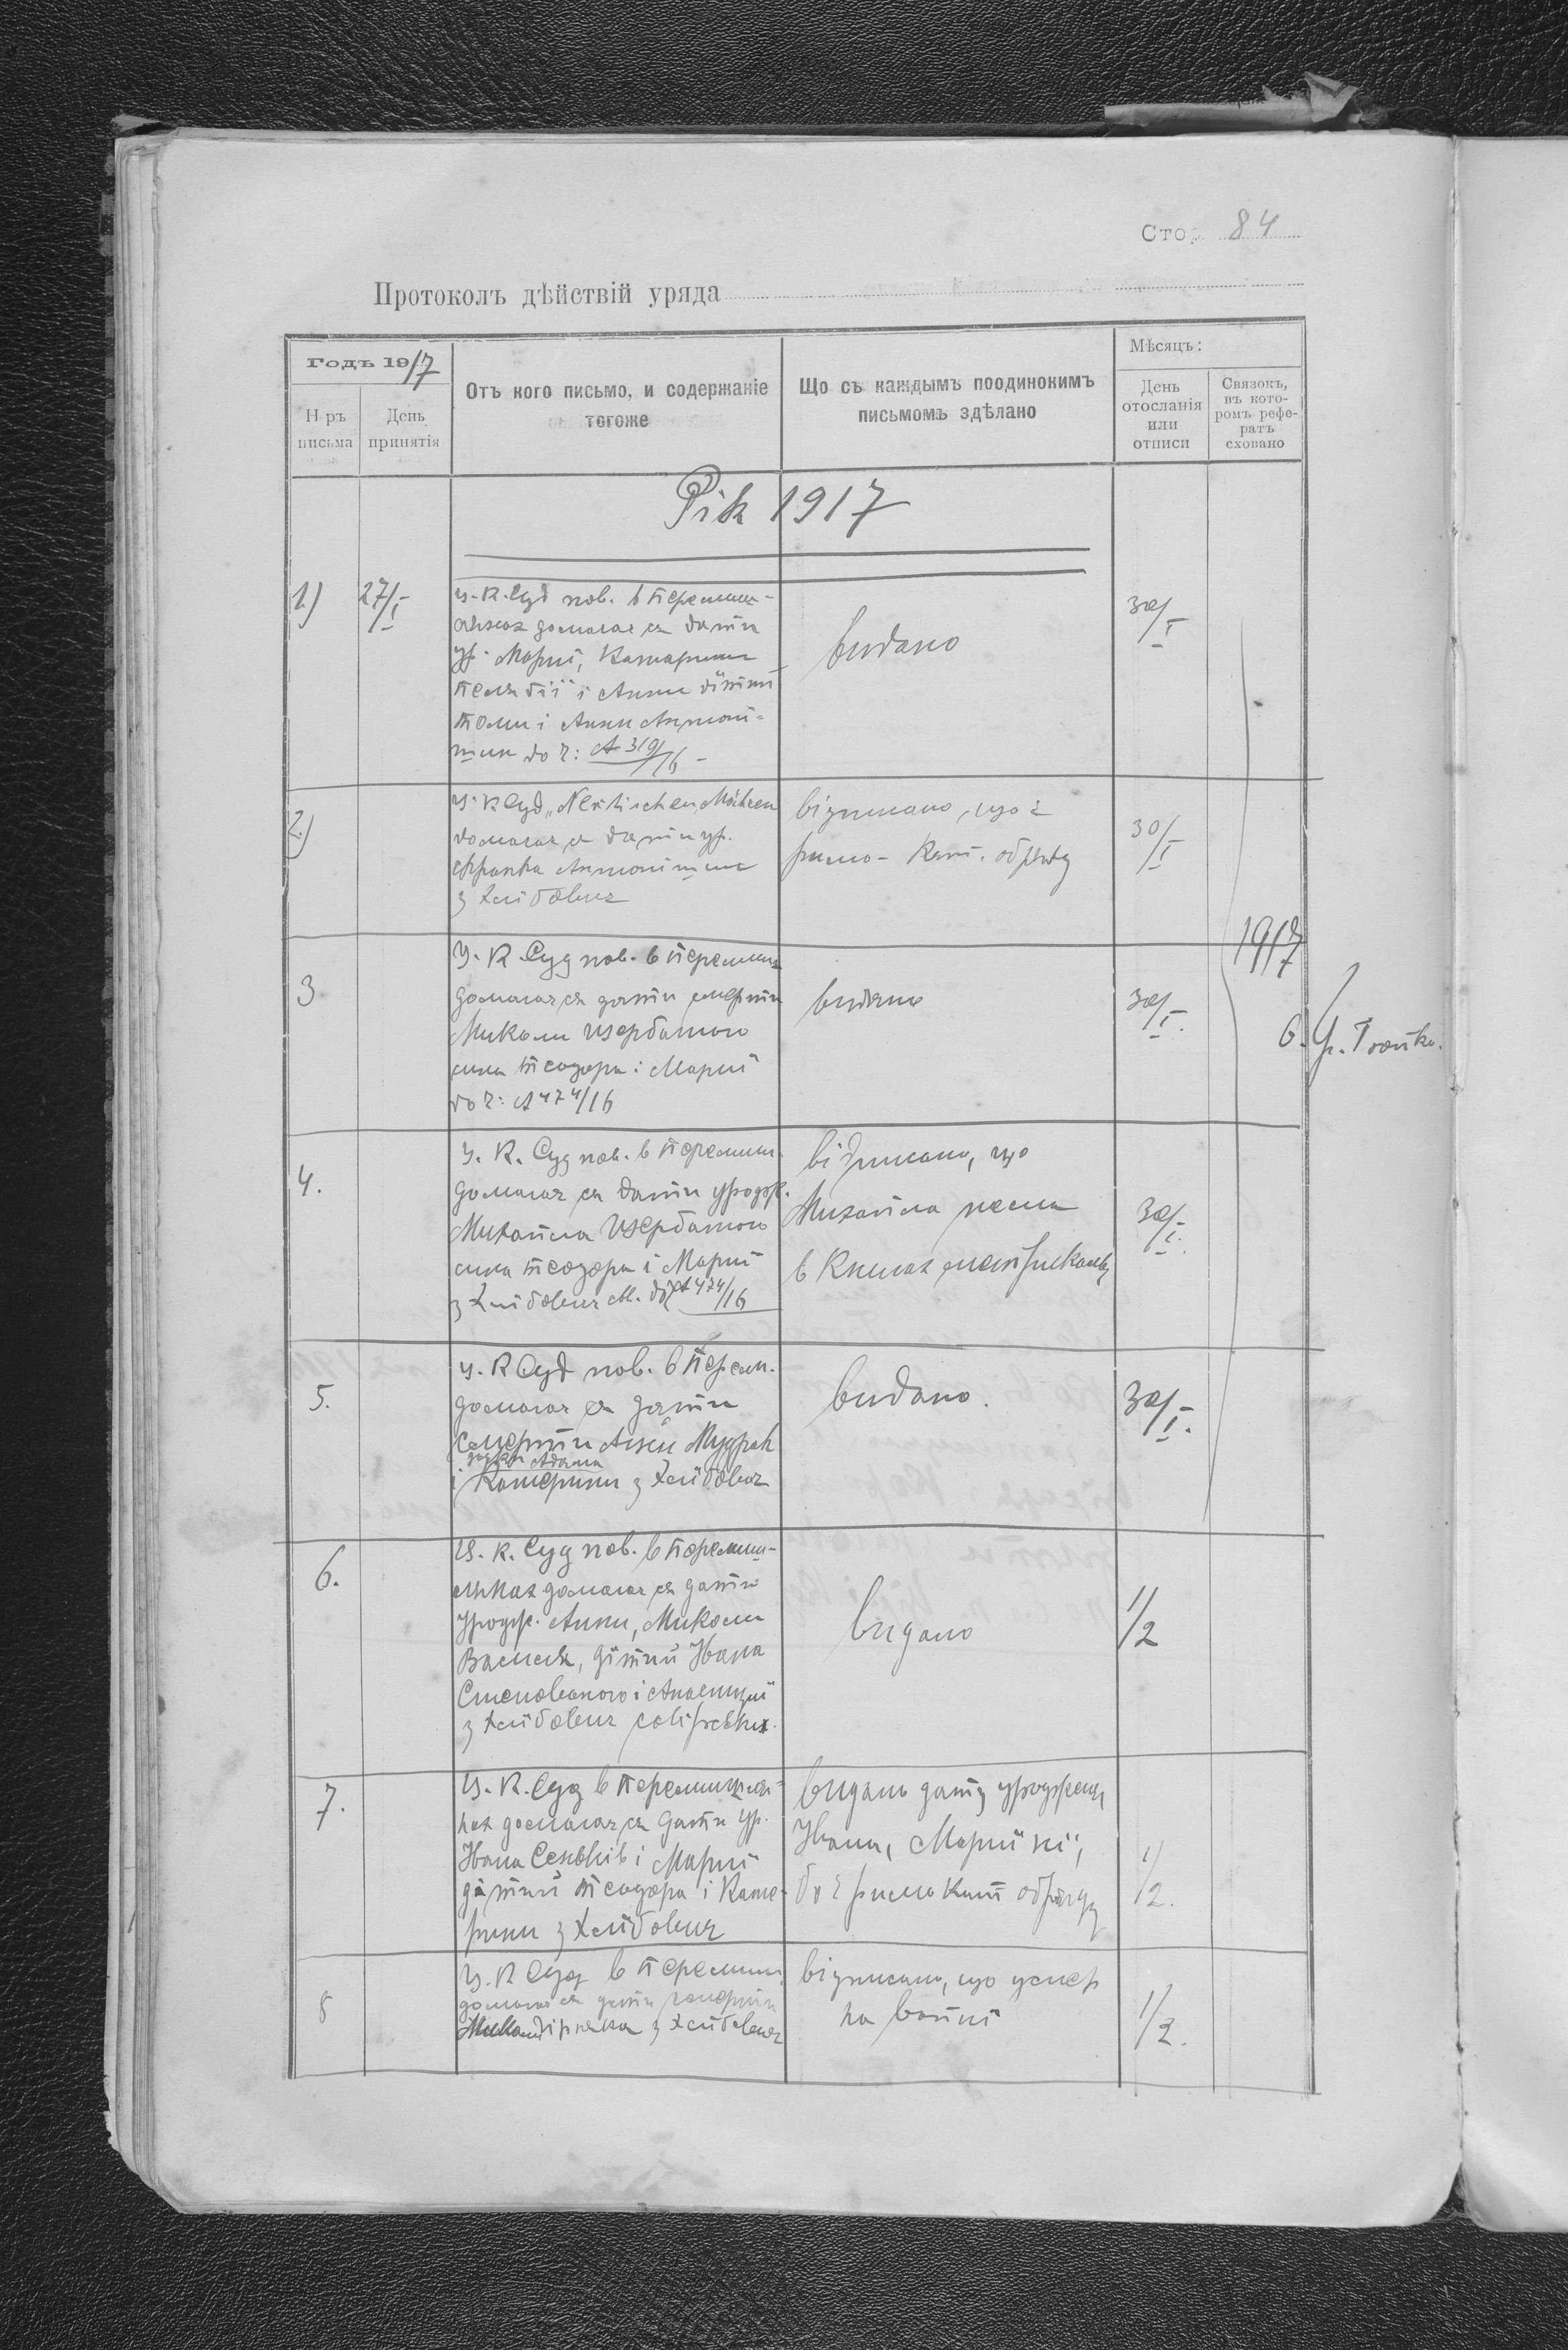 Стор. 84
Протоколъ дѣйствій уряда
Годъ 1917
Н-ръ письма
День принятія
Отъ кого письмо, и содержаніе тогоже
Що съ каждымъ поодинокимъ письмомъ здѣлано
Мѣсяцъ:
День отосланія или отписи
Связокъ, въ кото-ромъ рефе-ратъ сховано
Рік 1917
1.) 27/I
ц. к. Суд пов. в Перемиш-
лянах домагає ся дати
ур. Марії, Катарини
Пелягії і Анни дїтий
Томи і Анни Антонї-
шин до ч: А 319/16 -
видано
30/I
2.)
ц. к. Суд
домагає ся дати ур.
Франка Антонїшина
з Хлїбович
відписано, що є
римо-кат. обряду
30/I
3
Ц. К. Суд пов. в Перемиш
домагає ся дати смерти
Миколи Щербатого
сина Теодора і Марії
до ч: А 474/16
видано
30/I.
1917
о. Гр.
4.
Ц. К. Суд пов. в Перемиш.
домагає ся дати уродж.
Михайла Щербатого
сина Теодора і Марії
з Хлїбович до ч А 474/16
відписано, що
Михайла нема
в книгах метрикаль.
30/I.
5.
ц. К Суд пов. в Перем.
домагає ся дати
смерти Мудрак
Адама
і Катерини з Хлїбович
видано.
30/I.
6.
Ц. к. Суд пов. в Перемиш-
лянах домагає ся дати
Уродж. Анни, Миколи
Василя, дїтий Івана
Степованого і Анастазії
з Хлїбович свірських.
видано
1/2
7.
Ц. К. Суд в Перемишля-
нах домагає ся дати ур.
Івана Сеньків і Марії
дїтий Теодора і Кате-
рини з Хлїбович
видано дату уродженя
Івана, Марії нї,
бо є римо кат обряду
1/2.
8
Ц. К Суд в Перемиш.
домагає ся дати смерти
Миколи з Хлїбович
відписано, що умер
на війнї
1/2.